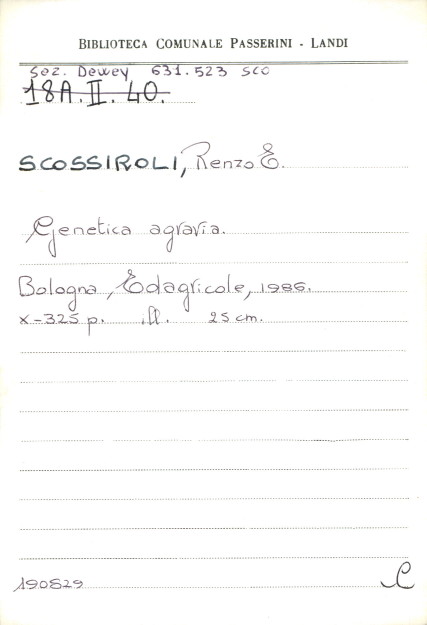 BIBLIOTECA COMUNALE PASSERINI - LANDI
Sez. Dewey 631.523 SCO
18A.II.40.
SCOSSIROLI, Renzo E.
Genetica agraria.
Bologna, Edagricole, 1986.
X-325 p. ill. 25 cm.
190829